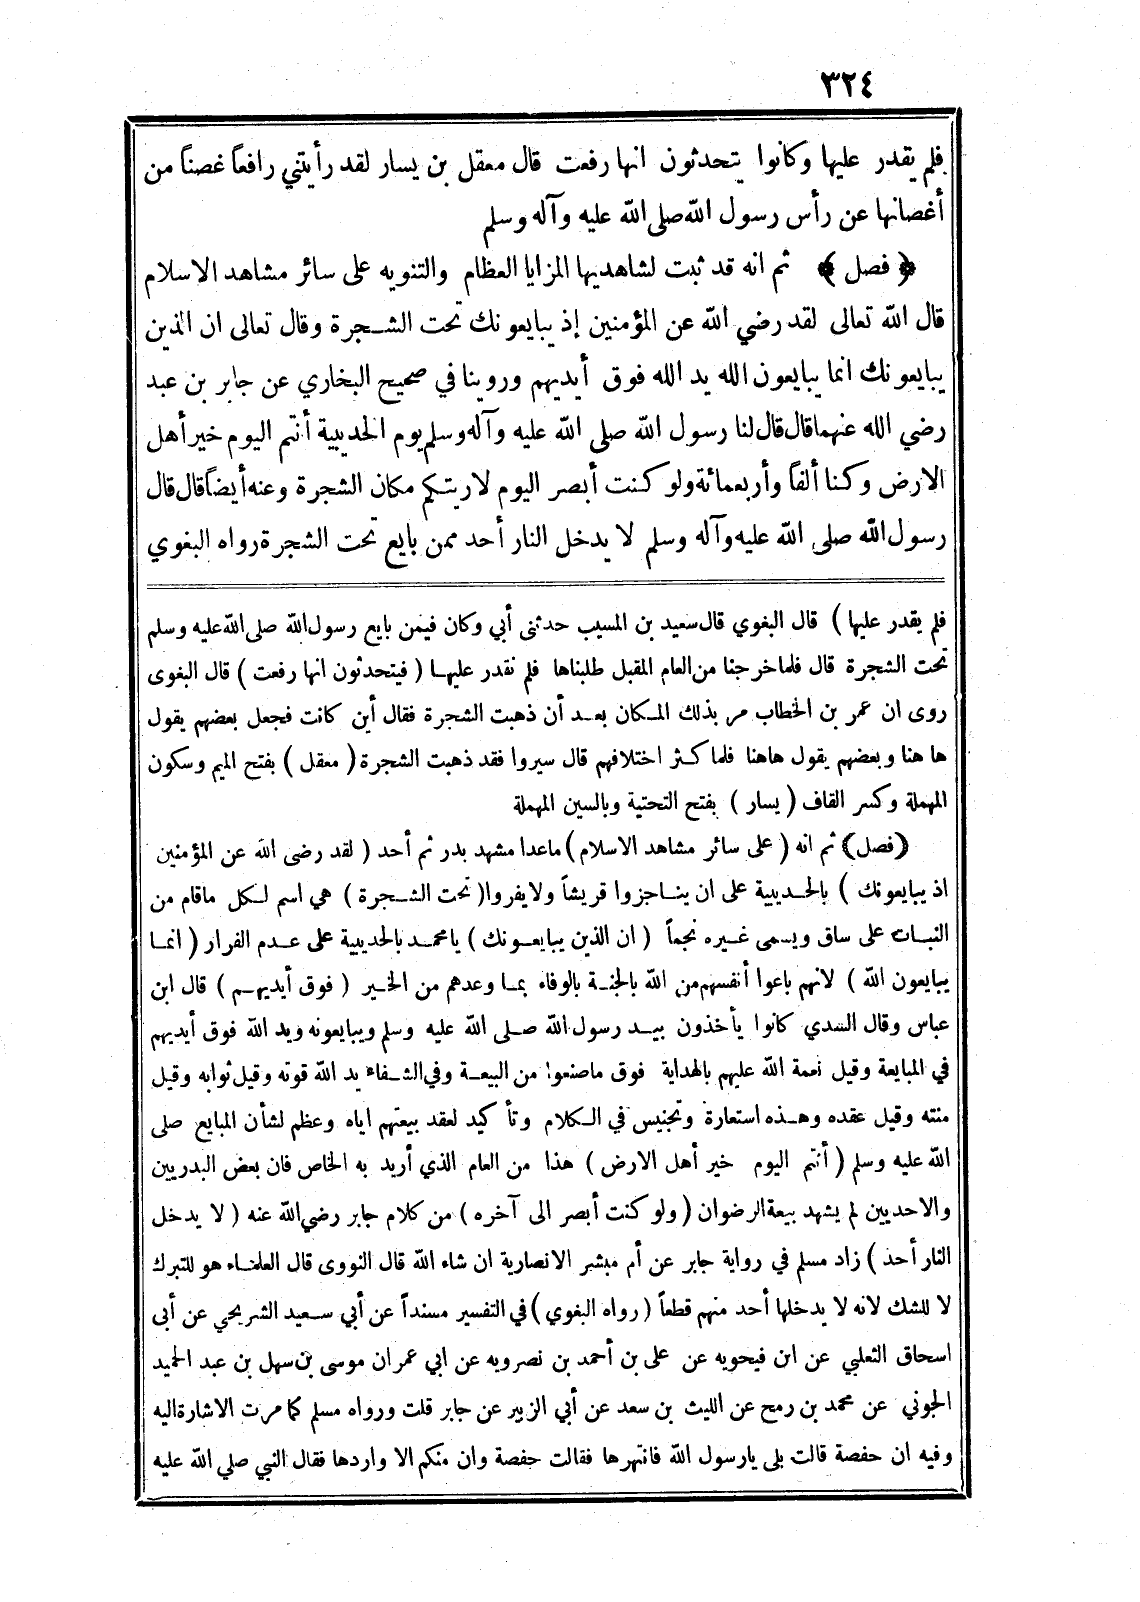 ٣٢٤
فلم يقدر عليها وكانوا يتحدثون انها رفعت قال معقل بن يسار لقد رأيتني رافعاً غصناً من
أغصانها عن رأس رسول الله صلى الله عليه وآله وسلم
﴿ فصل ﴾ ثم انه قد ثبت لشاهديها المزايا العظام والتنويه على سائر مشاهد الاسلام
قال الله تعالى لقد رضي الله عن المؤمنين إذ يبايعونك تحت الشجرة وقال تعالى ان الذين
يبايعونك انما يبايعون الله يد الله فوق أيديهم وروينا في صحيح البخاري عن جابر بن عبد
رضي الله عنهما قال قال لنا رسول الله صلى الله عليه وآله وسلم يوم الحديبية أنتم اليوم خير أهل
الارض وكنا ألفاً وأربعمائة ولو كنت أبصر اليوم لاريتكم مكان الشجرة وعنه أيضاً قال قال
رسول الله صلى الله عليه وآله وسلم لا يدخل النار أحد ممن بايع تحت الشجرة رواه البغوي
فلم يقدر عليها ) قال البغوي قال سعيد بن المسيب حدثنى أبي وكان فيمن بايع رسول الله صلى الله عليه وسلم
تحت الشجرة قال فلما خرجنا من العام المقبل طلبناها فلم نقدر عليها ( فيتحدثون انها رفعت ) قال البغوى
روى ان عمر بن الخطاب مر بذلك المكان بعد أن ذهبت الشجرة فقال أين كانت فجعل بعضهم يقول
ها هنا وبعضهم يقول هاهنا فلما كثر اختلافهم قال سيروا فقد ذهبت الشجرة ( معقل ) بفتح الميم وسكون
المهملة وكسر القاف ( يسار ) بفتح التحتية وبالسين المهملة
﴿فصل﴾ ثم انه ( على سائر مشاهد الاسلام ) ماعدا مشهد بدر ثم أحد ( لقد رضى الله عن المؤمنين
اذ يبايعونك ) بالحديبية على ان يناجزوا قريشاً ولا يفروا ( تحت الشجرة ) هي اسم لكل ماقام من
النبات على ساق ويسمى غيره نجماً ( ان الذين يبايعونك ) يا محمد بالحديبية على عدم الفرار ( انما
يبايعون الله ) لانهم باعوا أنفسهم من الله بالجنة بالوفاء بما وعدهم من الخير ( فوق أيديهم ) قال ابن
عباس وقال السدي كانوا يأخذون بيد رسول الله صلى الله عليه وسلم ويبايعونه ويد الله فوق أيديهم
في المبايعة وقيل نعمة الله عليهم بالهداية فوق ماصنعوا من البيعة وفي الشفاء يد الله قوته وقيل ثوابه وقيل
منته وقيل عقده وهذه استعارة وتجنيس في الكلام وتأكيد لعقد بيعتهم اياه وعظم لشأن المبايع صلى
الله عليه وسلم ( أنتم اليوم خير أهل الارض ) هذا من العام الذي أريد به الخاص فان بعض البدريين
والاحديين لم يشهد بيعة الرضوان ( ولو كنت أبصر الى آخره ) من كلام جابر رضي الله عنه ( لا يدخل
النار أحد ) زاد مسلم في رواية جابر عن أم مبشر الانصارية ان شاء الله قال النووى قال العلماء هو للتبرك
لا للشك لانه لا يدخلها أحد منهم قطعاً ( رواه البغوي ) في التفسير مسنداً عن أبي سعيد الشريحي عن أبى
اسحاق الثعلبي عن ابن فيحويه عن على بن أحمد بن نصرويه عن ابي عمران موسى بن سهل بن عبد الحميد
الجوني عن محمد بن رمح عن الليث بن سعد عن أبي الزبير عن جابر قلت ورواه مسلم كما مرت الاشارة اليه
وفيه ان حفصة قالت بلى يارسول الله فانتهرها فقالت حفصة وان منكم الا واردها فقال النبي صلي الله عليه